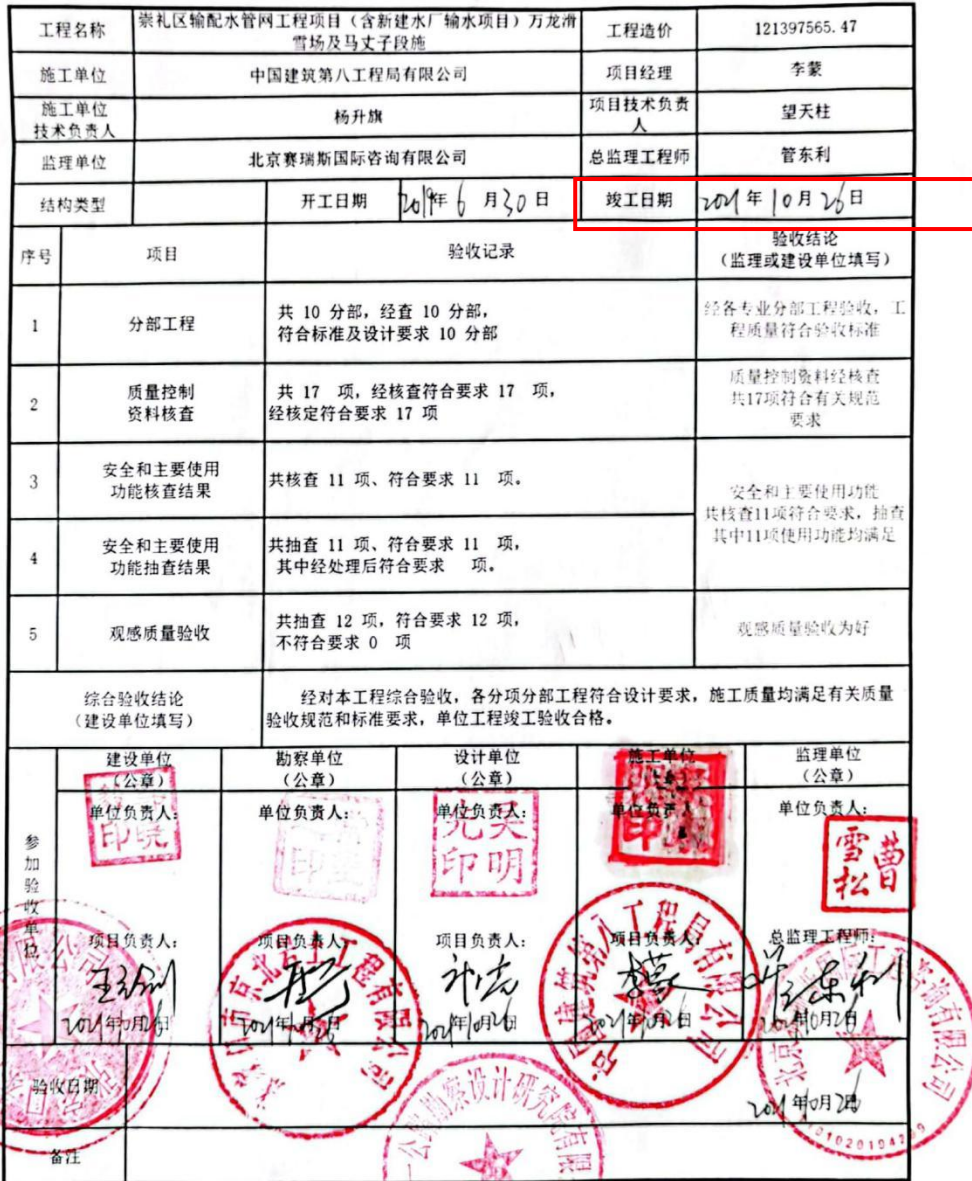 工程名称
崇礼区输配水管网工程项目（含新建水厂输水项目）万龙滑
雪场及马丈子段施
工程造价
121397565.47
施工单位
中国建筑第八工程局有限公司
项目经理
李蒙
施工单位
技术负责人
杨升旗
项目技术负责
人
望天柱
监理单位
北京赛瑞斯国际咨询有限公司
总监理工程师
管东利
结构类型
开工日期
2019年6月30日
竣工日期
2021年10月26日
序号
项目
验收记录
验收结论
（监理或建设单位填写）
1
分部工程
共 10 分部，经查 10 分部，
符合标准及设计要求 10 分部
经各专业分部工程验收，工
程质量符合验收标准
2
质量控制
资料核查
共 17 项，经核查符合要求 17 项，
经核定符合要求 17 项
质量控制资料经核查
共17项符合有关规范
要求
3
安全和主要使用
功能核查结果
共核查 11 项、符合要求 11 项。
安全和主要使用功能
共核查11项符合要求，抽查
其中11项使用功能均满足
4
安全和主要使用
功能抽查结果
共抽查 11 项、符合要求 11 项，
其中经处理后符合要求 项。
5
观感质量验收
共抽查 12 项，符合要求 12 项，
不符合要求 0 项
观感质量验收为好
综合验收结论
（建设单位填写）
经对本工程综合验收，各分项分部工程符合设计要求，施工质量均满足有关质量
验收规范和标准要求，单位工程竣工验收合格。
参加验收单位
建设单位
（公章）
勘察单位
（公章）
设计单位
（公章）
施工单位
（公章）
监理单位
（公章）
单位负责人：
单位负责人：
单位负责人：
单位负责人
单位负责人：
吴明
印
曹雪松
项目负责人：
项目负责人：
项目负责人：
项目负责人：
总监理工程师：
李蒙
管东利
2021年10月26日
2021年10月26日
2021年10月26日
2021年10月26日
2021年10月26日
验收日期
2021年10月26日
备注